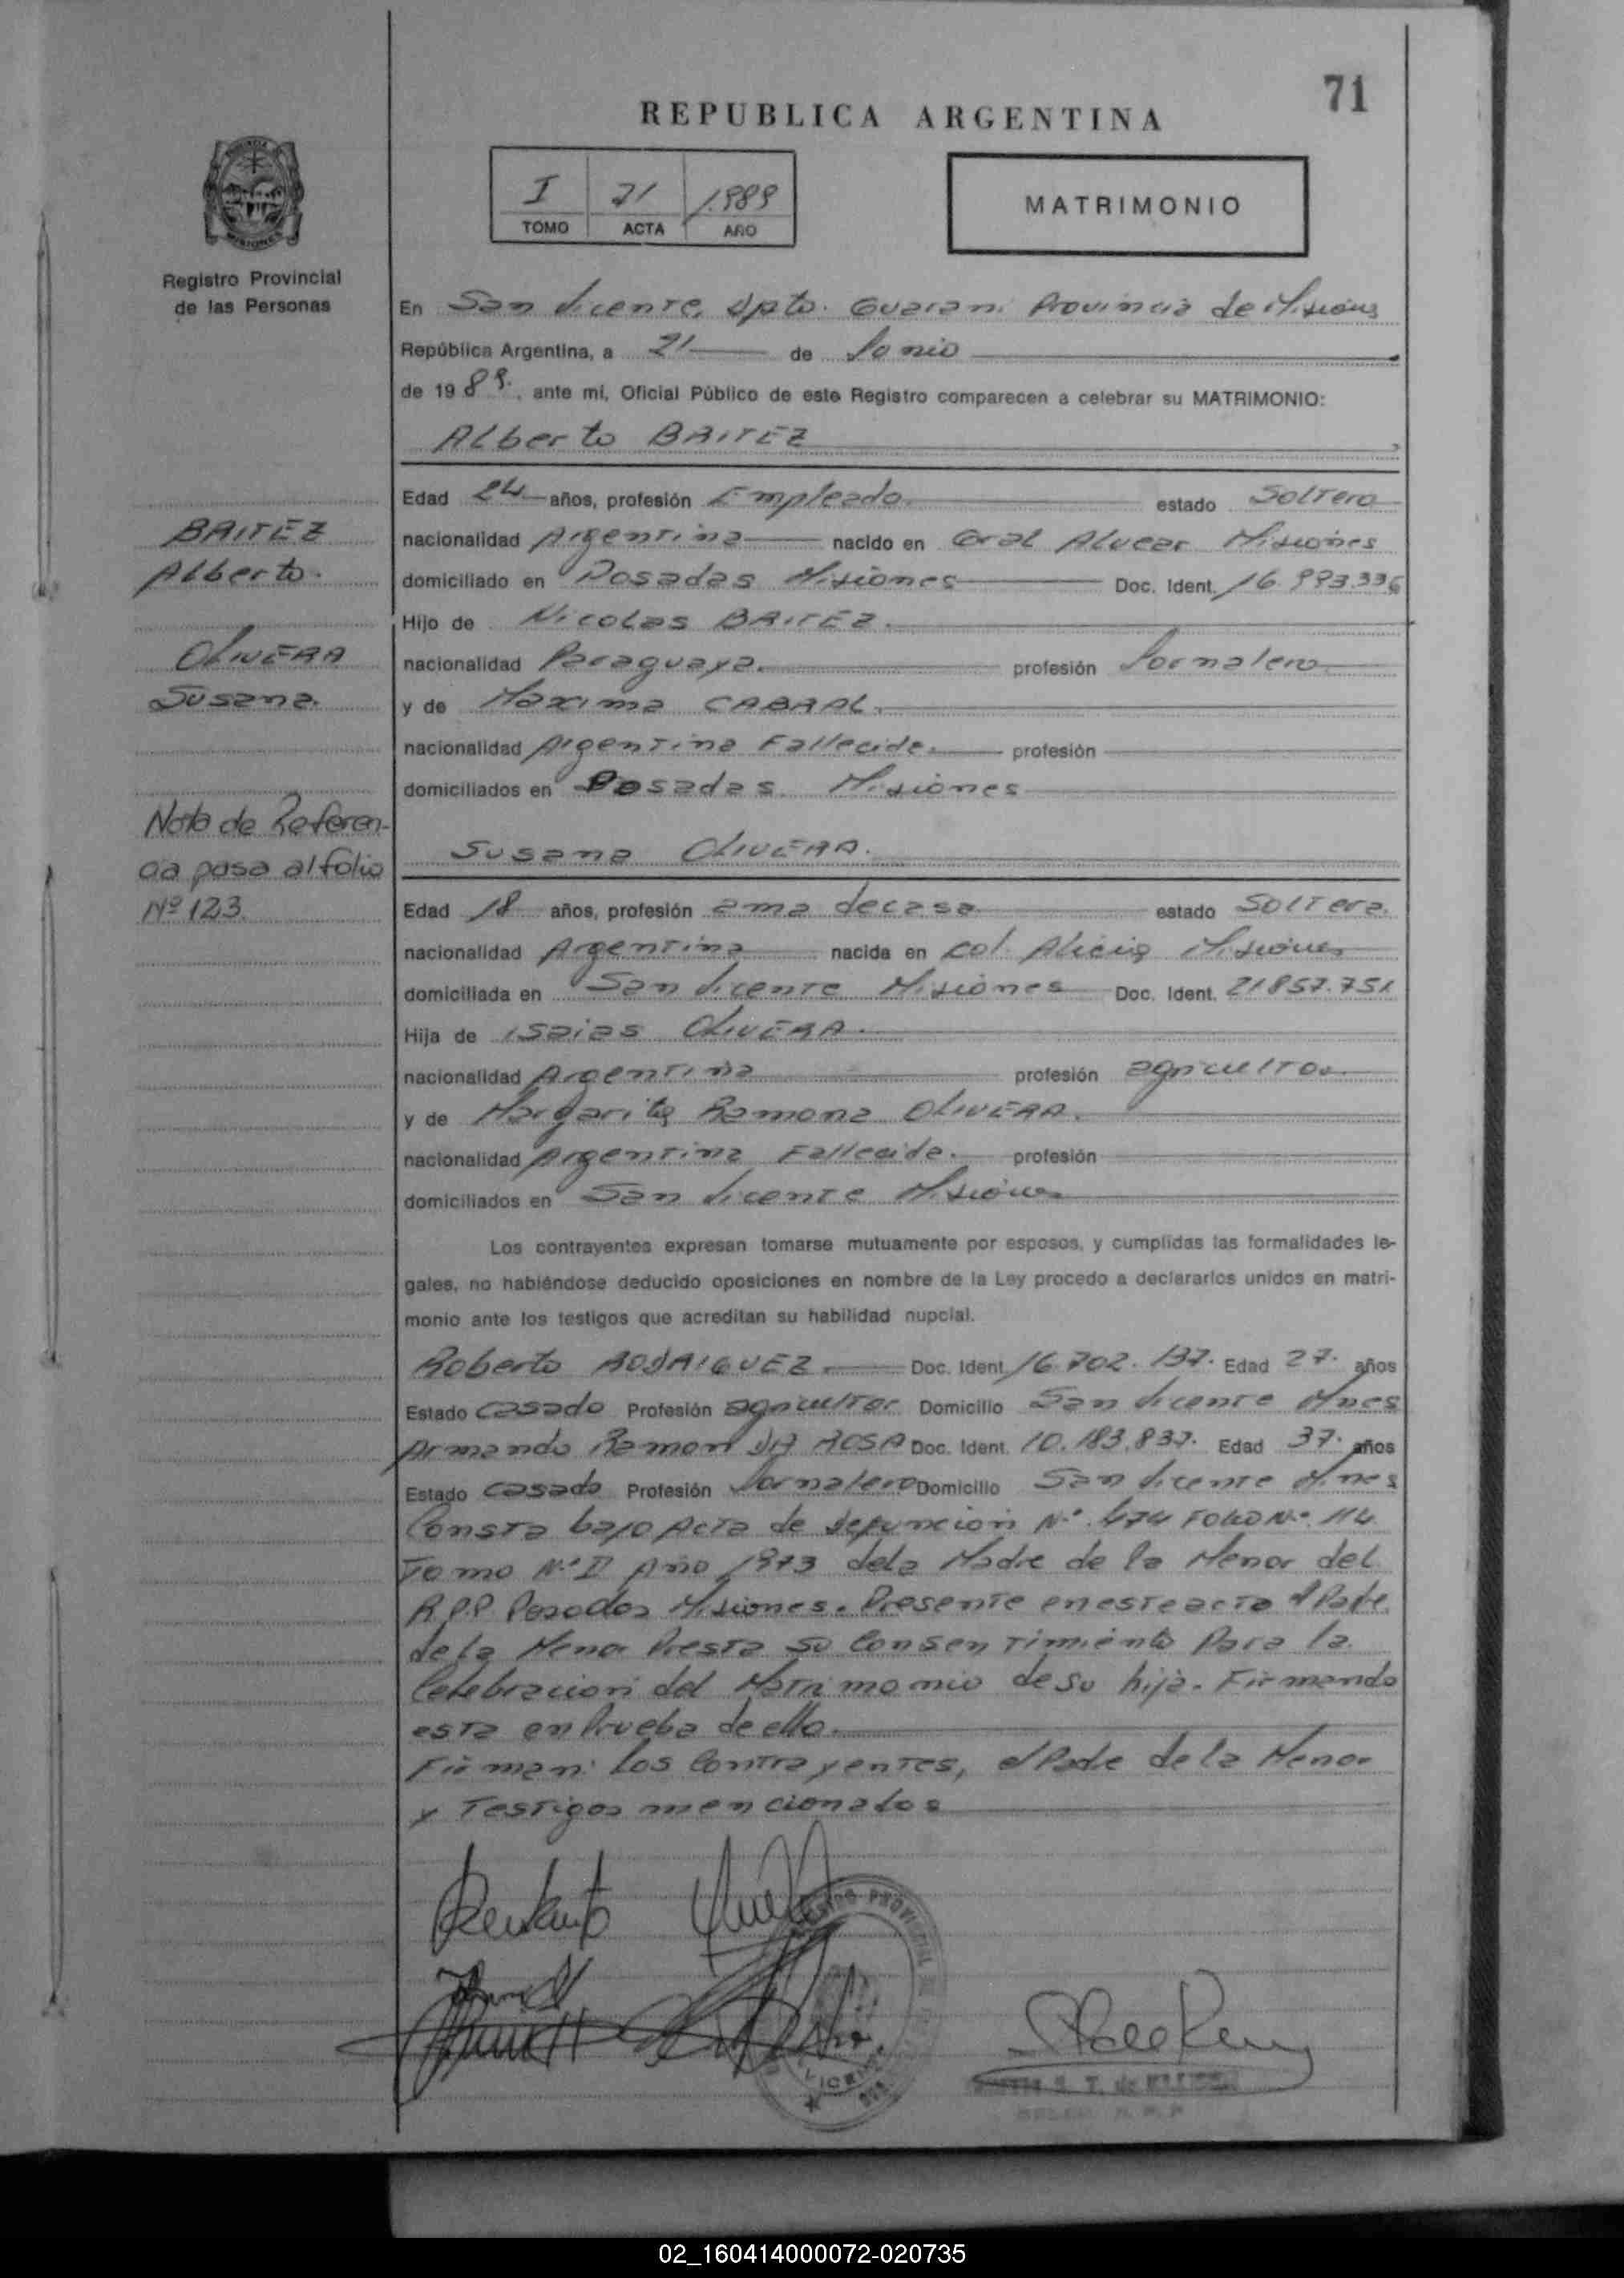 71
REPUBLICA ARGENTINA
I 71 1.989
TOMO ACTA AÑO
MATRIMONIO
Registro Provincial
de las Personas
En San Vicente, Dpto. Guarani Provincia de Misiones
República Argentina, a 21 de Junio
de 1989. ante mi, Oficial Público de este Registro comparecen a celebrar su MATRIMONIO:
Alberto BAITEZ
Edad 24 años, profesión Empleado. estado Soltero
nacionalidad Argentina nacido en Gral Alvear Misiones
domiciliado en Posadas Misiones Doc. Ident. 16.993.336
Hijo de Nicolas BAITEZ.
nacionalidad Paraguaya. profesión Jornalero
y de Maxima CABRAL.
nacionalidad Argentina Fallecida. profesión
domiciliados en Posadas Misiones
BAITEZ
Alberto.
OLIVERA
Susana.
Nota de Referen-
cia pasa al folio
Nº 123
Susana OLIVERA.
Edad 18 años, profesión ama de casa estado Soltera.
nacionalidad Argentina nacida en Col. Alicia Misiones
domiciliada en San Vicente Misiones Doc. Ident. 21.857.751
Hija de Isaias OLIVERA.
nacionalidad Argentina profesión agricultor
y de Margarita Ramona OLIVERA.
nacionalidad Argentina Fallecida. profesión
domiciliados en San Vicente Misiones
Los contrayentes expresan tomarse mutuamente por esposos, y cumplidas las formalidades le-
gales, no habiéndose deducido oposiciones en nombre de la Ley procedo a declararlos unidos en matri-
monio ante los testigos que acreditan su habilidad nupcial.
Roberto RODRIGUEZ Doc. Ident. 16.702.137. Edad 27. años
Estado Casado Profesión agricultor Domicilio San Vicente Mnes
Armando Ramon DA ROSA Doc. Ident. 10.183.837. Edad 37. años
Estado Casado Profesión Jornalero Domicilio San Vicente Mnes
Consta bajo Acta de Defuncion Nº. 474 FOLIO Nº. 114
Tomo Nº II Año 1973 dela Madre de la Menor del
R.P.P. Posadas Misiones. Presente en este acto el Padre
de la Menor Presta su Consentimiento Para la
Celebracion del Matrimomnio de su hija. Firmando
esta en Prueba de ello.
Firman: Los Contrayentes, el Padre de la Menor
y Testigos mencionados
02_160414000072-020735